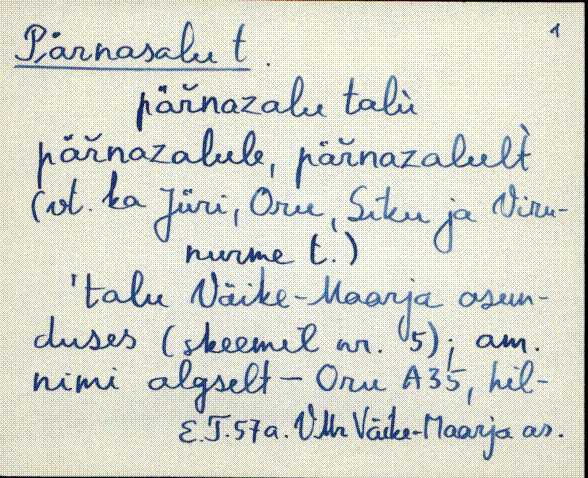 1
Pärnasalu t.
päřnazalu talù
päřnazalule, päřnazalul̀t
(vt. ka Jüri, Oru, Siku ja Viru-
nurme t.)
'talu Väike-Maarja asun-
duses (skeemil nr. 5); am.
nimi algselt – Oru A35, hil-
E.T.57a. VMr Väike-Maarja as.